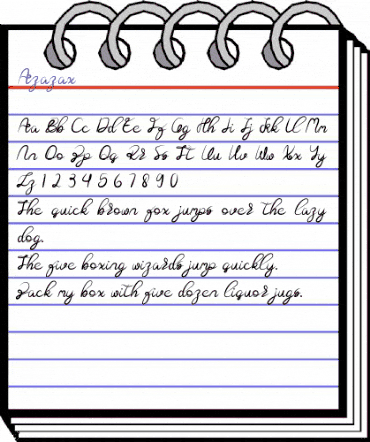 Azazax
Aa Bb Cc Dd Ee Ff Gg Hh Ii Jj Kk Ll Mm
Nn Oo Pp Qq Rr Ss Tt Uu Vv Ww Xx Yy
Zz 1 2 3 4 5 6 7 8 9 0
The quick brown fox jumps over the lazy
dog.
The five boxing wizards jump quickly.
Pack my box with five dozen liquor jugs.